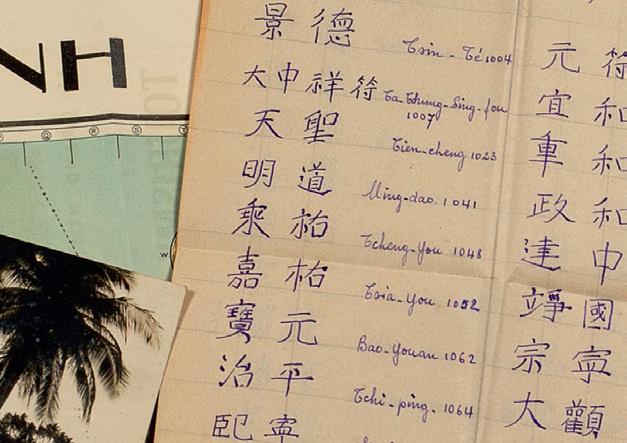 NH
景德 Tsin - Té 1004
大中祥符 Ta-Tchung-Sing-fou
1007
天聖 Tien-cheng 1023
明道 Ming-dao. 1041
乘祐 Tcheng-You 1048
嘉祐 Tsia-You 1052
寶元 Bao-Youan 1062
治平 Tchi-ping. 1064
熙寧
元符
宜和
重和
政和
建中
竫國
宗寧
大觀